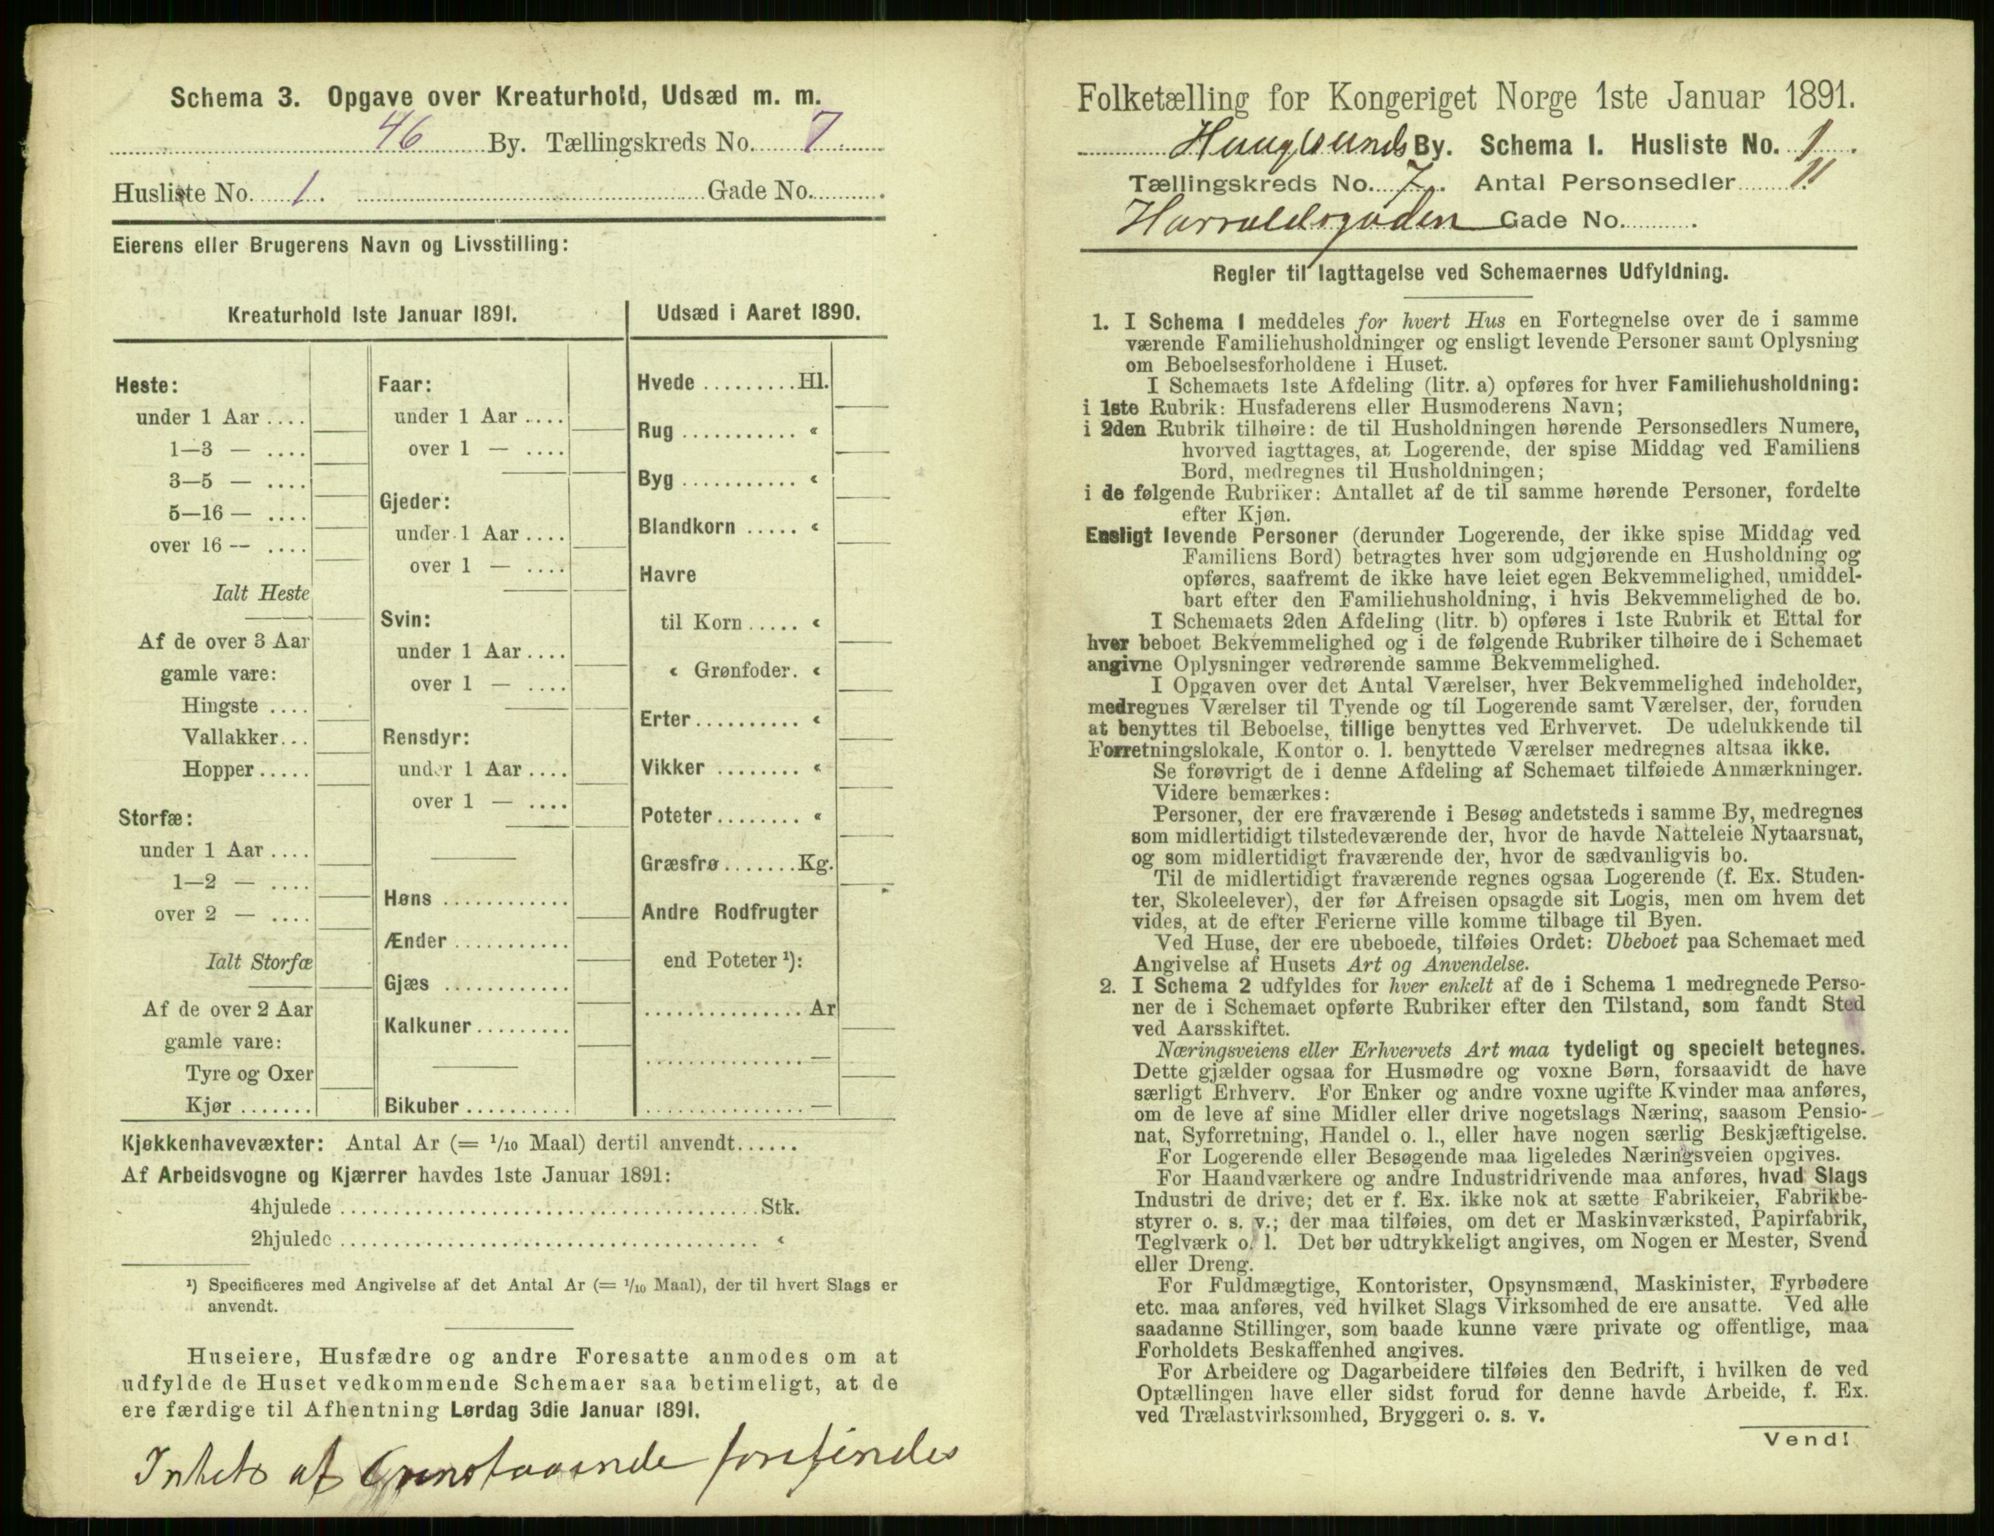 Schema 3. Opgave over Kreaturhold, Udsæd m. m.
46 By. Tællingskreds No. 7.
Husliste No. 1. Gade No.
Eierens eller Brugerens Navn og Livsstilling:
Kreaturhold 1ste Januar 1891.
Heste:
under 1 Aar ....
1—3 — ....
3—5 — ....
5—16 — ....
over 16 — ....
Ialt Heste
Af de over 3 Aar
gamle vare:
Hingste ....
Vallakker...
Hopper .....
Storfæ:
under 1 Aar ....
1—2 — ....
over 2 — ....
Ialt Storfæ
Af de over 2 Aar
gamle vare:
Tyre og Oxer
Kjør .......
Faar:
under 1 Aar ....
over 1 — ....
Gjeder:
under 1 Aar ....
over 1 — ....
Svin:
under 1 Aar ....
over 1 — ....
Rensdyr:
under 1 Aar ....
over 1 — ....
Høns ............
Ænder ...........
Gjæs ............
Kalkuner.........
Bikuber ..........
Udsæd i Aaret 1890.
Hvede .........Hl.
Rug ........... «
Byg ........... «
Blandkorn ..... «
Havre
til Korn ..... «
« Grønfoder. «
Erter.......... «
Vikker ........ «
Poteter........ «
Græsfrø .......Kg.
Andre Rodfrugter
end Poteter ¹):
............... Ar
............... —
............... —
Kjøkkenhavevæxter: Antal Ar (= 1/10 Maal) dertil anvendt......
Af Arbeidsvogne og Kjærrer havdes 1ste Januar 1891:
4hjulede ........................................ Stk.
2hjulede ........................................ «
¹) Specificeres med Angivelse af det Antal Ar (= 1/10 Maal), der til hvert Slags er
anvendt.
Huseiere, Husfædre og andre Foresatte anmodes om at
udfylde de Huset vedkommende Schemaer saa betimeligt, at de
ere færdige til Afhentning Lørdag 3die Januar 1891.
Intets af Ovenstaaende forefindes
Folketælling for Kongeriget Norge 1ste Januar 1891.
Haugesunds By. Schema 1. Husliste No. 1.
Tællingskreds No. 7. Antal Personsedler 11.
Harraldsgaden Gade No.
Regler til Iagttagelse ved Schemaernes Udfyldning.
1. I Schema 1 meddeles for hvert Hus en Fortegnelse over de i samme
værende Familiehusholdninger og ensligt levende Personer samt Oplysning
om Beboelsesforholdene i Huset.
I Schemaets 1ste Afdeling (litr. a) opføres for hver Familiehusholdning:
i 1ste Rubrik: Husfaderens eller Husmoderens Navn;
i 2den Rubrik tilhøire: de til Husholdningen hørende Personsedlers Numere,
hvorved iagttages, at Logerende, der spise Middag ved Familiens
Bord, medregnes til Husholdningen;
i de følgende Rubriker: Antallet af de til samme hørende Personer, fordelte
efter Kjøn.
Ensligt levende Personer (derunder Logerende, der ikke spise Middag ved
Familiens Bord) betragtes hver som udgjørende en Husholdning og
opføres, saafremt de ikke have leiet egen Bekvemmelighed, umiddel-
bart efter den Familiehusholdning, i hvis Bekvemmelighed de bo.
I Schemaets 2den Afdeling (litr. b) opføres i 1ste Rubrik et Ettal for
hver beboet Bekvemmelighed og i de følgende Rubriker tilhøire de i Schemaet
angivne Oplysninger vedrørende samme Bekvemmelighed.
I Opgaven over det Antal Værelser, hver Bekvemmelighed indeholder,
medregnes Værelser til Tyende og til Logerende samt Værelser, der, foruden
at benyttes til Beboelse, tillige benyttes ved Erhvervet. De udelukkende til
Forretningslokale, Kontor o. l. benyttede Værelser medregnes altsaa ikke.
Se forøvrigt de i denne Afdeling af Schemaet tilføiede Anmærkninger.
Videre bemærkes:
Personer, der ere fraværende i Besøg andetsteds i samme By, medregnes
som midlertidigt tilstedeværende der, hvor de havde Natteleie Nytaarsnat,
og som midlertidigt fraværende der, hvor de sædvanligvis bo.
Til de midlertidigt fraværende regnes ogsaa Logerende (f. Ex. Studen-
ter, Skoleelever), der før Afreisen opsagde sit Logis, men om hvem det
vides, at de efter Ferierne ville komme tilbage til Byen.
Ved Huse, der ere ubeboede, tilføies Ordet: Ubeboet paa Schemaet med
Angivelse af Husets Art og Anvendelse.
2. I Schema 2 udfyldes for hver enkelt af de i Schema 1 medregnede Perso-
ner de i Schemaet opførte Rubriker efter den Tilstand, som fandt Sted
ved Aarsskiftet.
Næringsveiens eller Erhvervets Art maa tydeligt og specielt betegnes.
Dette gjælder ogsaa for Husmødre og voxne Børn, forsaavidt de have
særligt Erhverv. For Enker og andre voxne ugifte Kvinder maa anføres,
om de leve af sine Midler eller drive nogetslags Næring, saasom Pensio-
nat, Syforretning, Handel o. l., eller have nogen særlig Beskjæftigelse.
For Logerende eller Besøgende maa ligeledes Næringsveien opgives.
For Haandværkere og andre Industridrivende maa anføres, hvad Slags
Industri de drive; det er f. Ex. ikke nok at sætte Fabrikeier, Fabrikbe-
styrer o. s. v.; der maa tilføies, om det er Maskinværksted, Papirfabrik,
Teglværk o. l. Det bør udtrykkeligt angives, om Nogen er Mester, Svend
eller Dreng.
For Fuldmægtige, Kontorister, Opsynsmænd, Maskinister, Fyrbødere
etc. maa anføres, ved hvilket Slags Virksomhed de ere ansatte. Ved alle
saadanne Stillinger, som baade kunne være private og offentlige, maa
Forholdets Beskaffenhed angives.
For Arbeidere og Dagarbeidere tilføies den Bedrift, i hvilken de ved
Optællingen have eller sidst forud for denne havde Arbeide, f. Ex.
ved Trælastvirksomhed, Bryggeri o. s. v.
Vend!